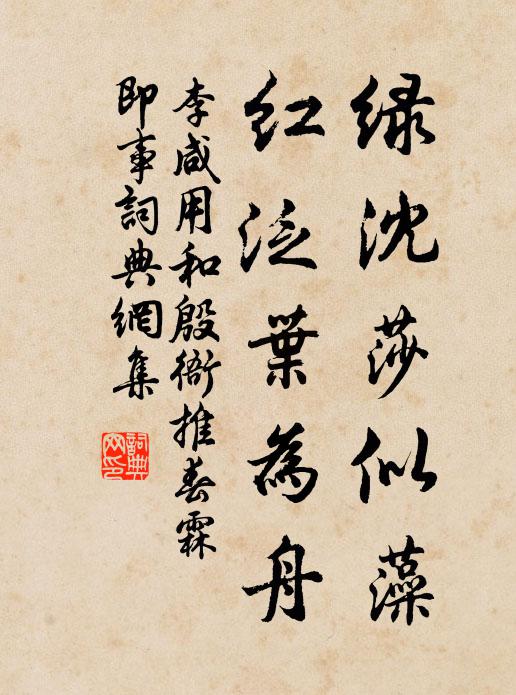 緑沈莎似藻
紅泛葉為舟
李咸用和殷衙推春霖
即事詞典網集
詞典
网印